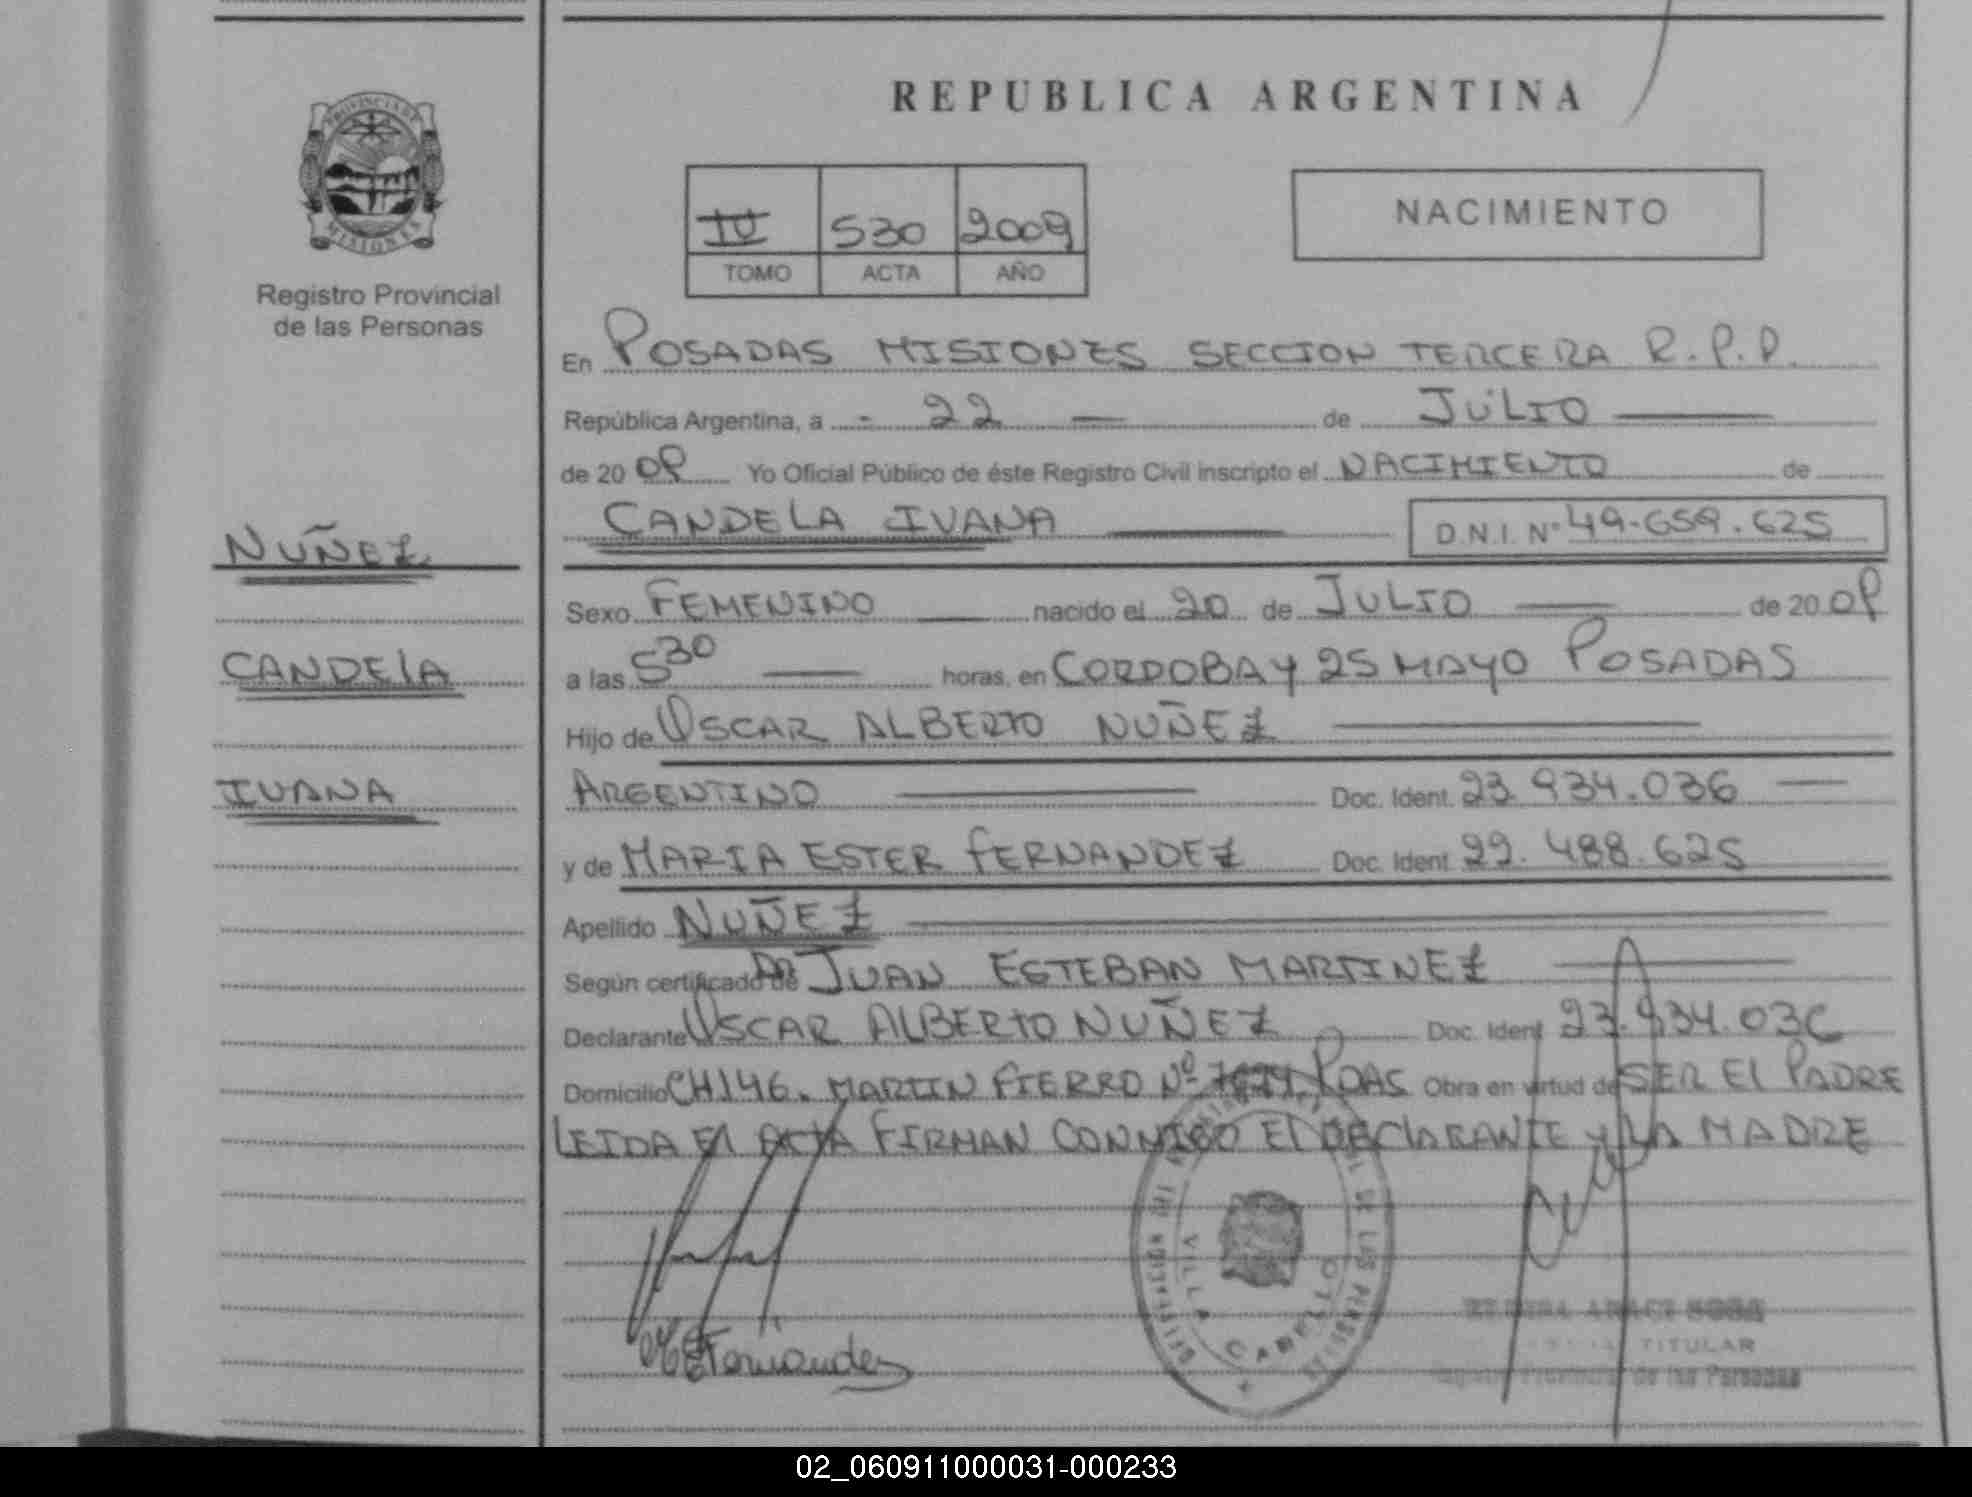 PROVINCIA DE
MISIONES
Registro Provincial
de las Personas
NUÑEZ
CANDELA
IVANA
REPUBLICA ARGENTINA
IV 530 2009
TOMO ACTA AÑO
NACIMIENTO
En POSADAS MISIONES SECCION TERCERA R.P.P.
República Argentina, a - 22 — de JULIO —
de 20 09 Yo Oficial Público de éste Registro Civil inscripto el NACIMIENTO de
CANDELA IVANA — D.N.I. Nº 49-659.625
Sexo FEMENINO — nacido el 20 de JULIO — de 20 09
a las 5 30 — horas, en CORDOBA y 25 MAYO POSADAS
Hijo de OSCAR ALBERTO NUÑEZ —
ARGENTINO — Doc. Ident. 23.934.036 —
y de MARIA ESTER FERNANDEZ Doc. Ident. 22.488.625
Apellido NUÑEZ —
Según certificado de DR JUAN ESTEBAN MARTINEZ —
Declarante OSCAR ALBERTO NUÑEZ Doc. Ident 23.934.036
Domicilio CH146. MARTIN FIERRO Nº PDAS Obra en virtud de SER El PADRE
LEIDA El ACTA FIRMAN CONMIGO El DECLARANTE y LA MADRE
VILLA CABELLO
DE LAS PERSONAS
M E Fernandez
SOSA
TITULAR
Registro Provincial de las Personas
02_060911000031-000233